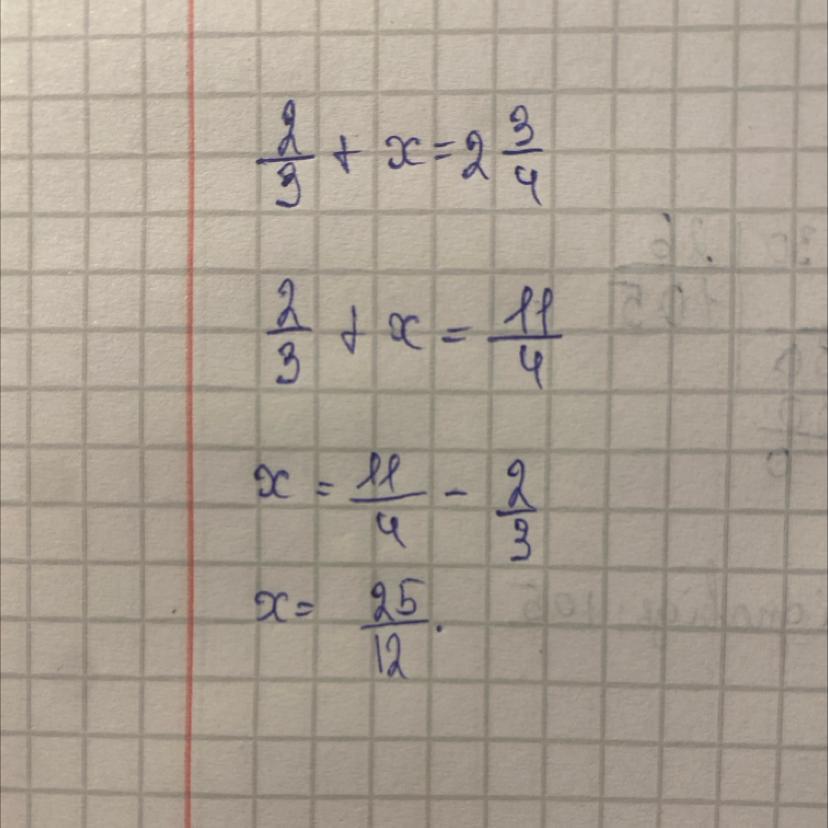 2/3 + x = 2 3/4
2/3 + x = 11/4
x = 11/4 - 2/3
x = 25/12.